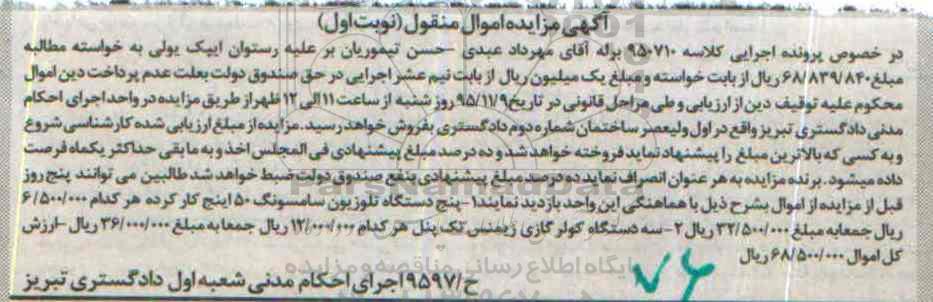 آگهی مزایده اموال منقول (نوبت اول)
در خصوص پرونده اجرایی کلاسه ۹۵۰۷۱۰ برله آقای مهرداد عبدی -حسن تیموریان بر علیه رستوران اییک یولی به خواسته مطالبه
مبلغ ۶۸/۸۳۹/۸۴۰ ریال از بابت خواسته و مبلغ یک میلیون ریال از بابت نیم عشر اجرایی در حق صندوق دولت بعلت عدم پرداخت دین اموال
محکوم علیه توقیف دین از ارزیابی و طی مراحل قانونی در تاریخ ۹۵/۱۱/۹ روز شنبه از ساعت ۱۱ الی ۱۲ ظهر از طریق مزایده در واحد اجرای احکام
مدنی دادگستری تبریز واقع در اول ولیعصر ساختمان شماره دوم دادگستری بفروش خواهد رسید. مزایده از مبلغ ارزیابی شده کارشناسی شروع
و به کسی که بالاترین مبلغ را پیشنهاد نماید فروخته خواهد شد و ده درصد مبلغ پیشنهادی فی المجلس اخذ و به مابقی حداکثر یکماه فرصت
داده میشود. برنده مزایده به هر عنوان انصراف نماید ده درصد مبلغ پیشنهادی بنفع صندوق دولت ضبط خواهد شد طالبین می توانند پنج روز
قبل از مزایده از اموال بشرح ذیل با هماهنگی این واحد بازدید نمایند ۱-پنج دستگاه تلوزیون سامسونگ ۵۰ اینچ کار کرده هر کدام ۶/۵۰۰/۰۰۰
ریال جمعا به مبلغ ۳۲/۵۰۰/۰۰۰ ریال ۲-سه دستگاه کولر گازی زیمنس تک پنل هر کدام ۱۲/۰۰۰/۰۰۰ ریال جمعا به مبلغ ۳۶/۰۰۰/۰۰۰ ریال -ارزش
کل اموال ۶۸/۵۰۰/۰۰۰ ریال
ح/۹۵۹۷ اجرای احکام مدنی شعبه اول دادگستری تبریز
ParsNamadData
پایگاه اطلاع رسانی مناقصه و مزایده